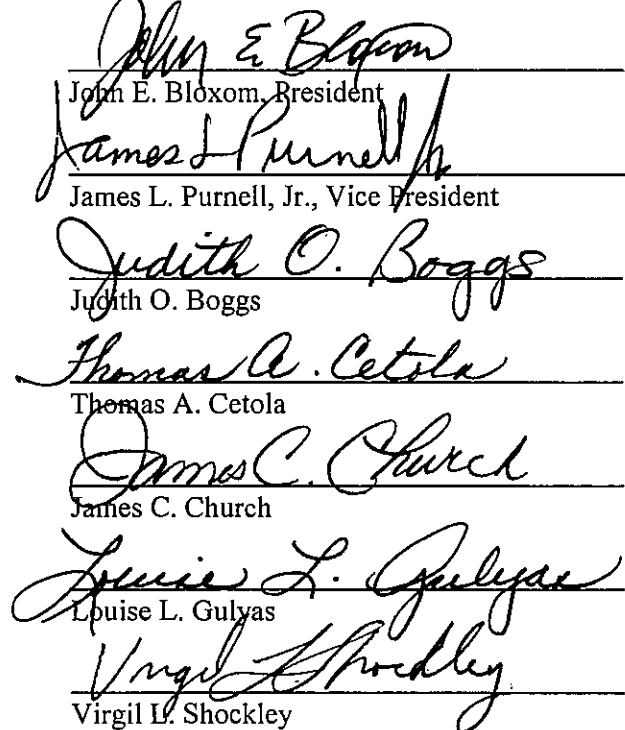 John E Bloxom
John E. Bloxom, President
James L Purnell Jr
James L. Purnell, Jr., Vice President
Judith O. Boggs
Judith O. Boggs
Thomas A. Cetola
Thomas A. Cetola
James C. Church
James C. Church
Louise L. Gulyas
Louise L. Gulyas
Virgil L Shockley
Virgil L. Shockley